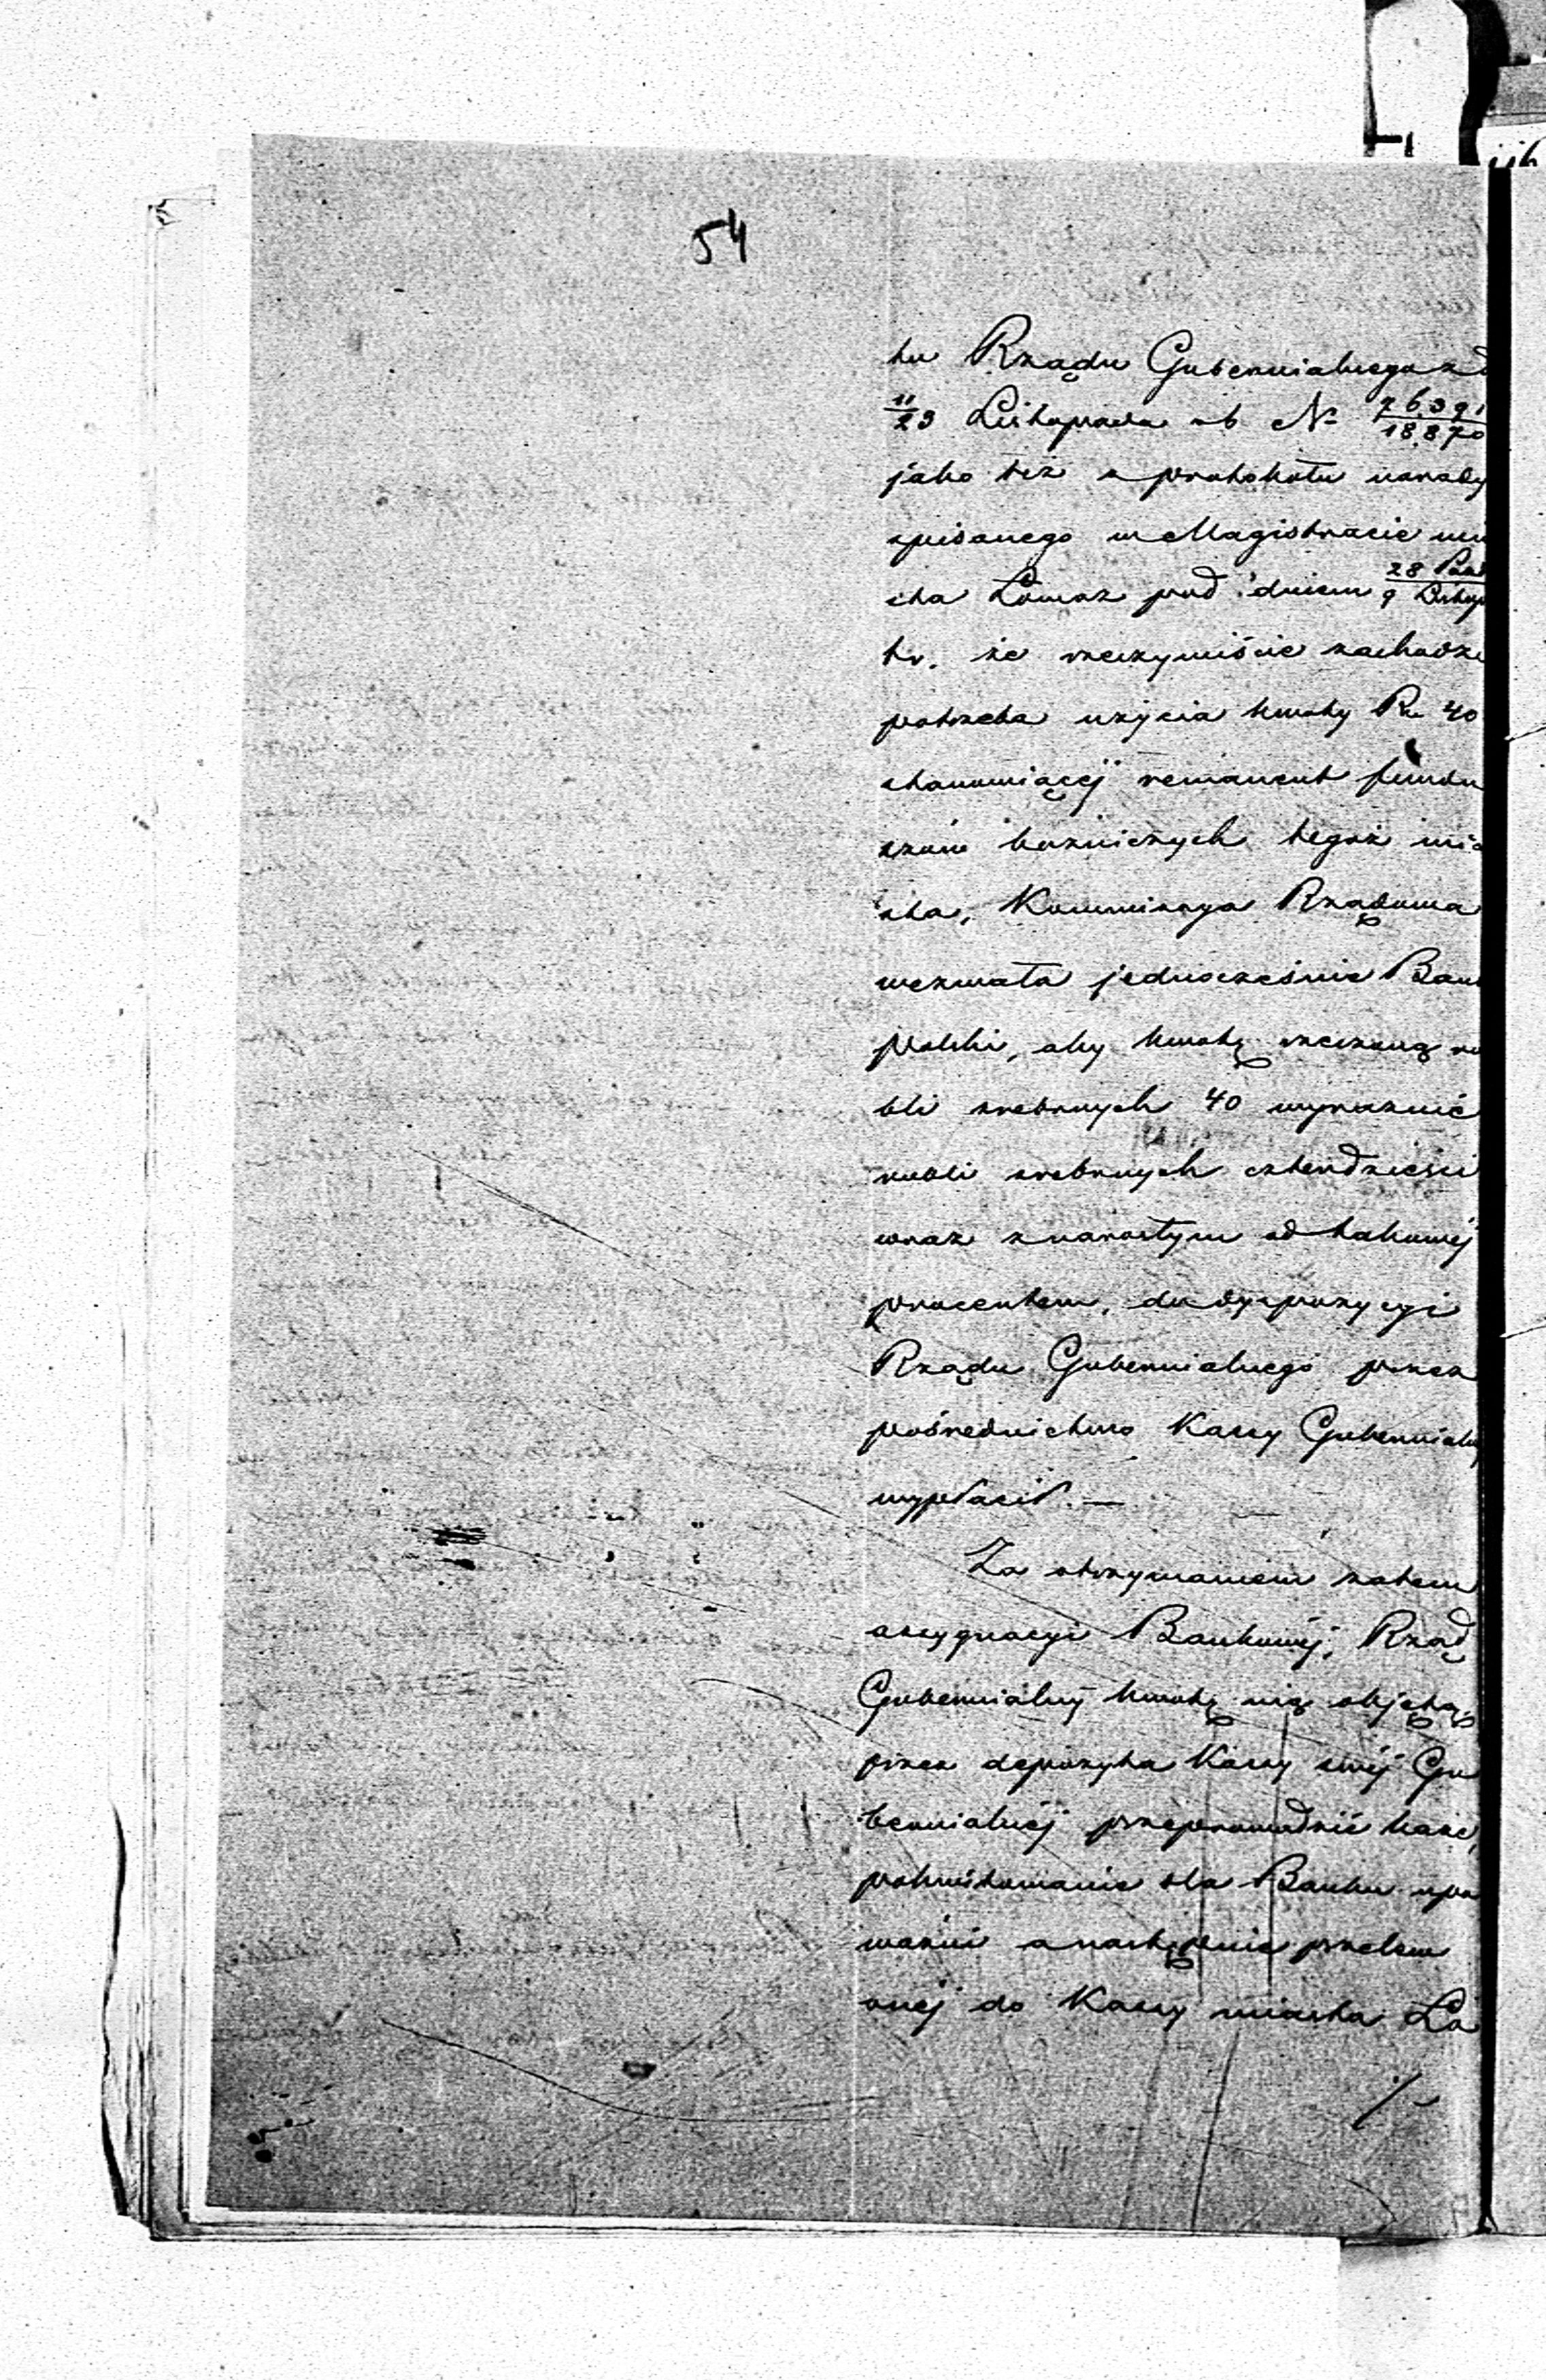 54
tu Rządu Gubernialnego z d
11/23 Listopada rb N 76.391/18.870
jako też z protokółu narady
spisanego w Magistracie mia
sta Łomaz pod dniem 28 Paźd/9 Listop
tr. że rzeczywiście zachodzi
potrzeba użycia kwoty Rs 40
stanowiącéj remanent fundu
szów bożniczych tegoż mia
sta, Kommissya Rządowa
wezwała jednocześnie Bank
Polski, aby kwotę rzeczoną ru
bli srebrnych 40 wyraźnie
rubli srebrnych czterdzieści
wraz z narosłym od takowéj
procentem, do dyspozycyi
Rządu Gubernialnego przez
pośrednictwo Kassy Gubernialnéj
wypłacił. —
Za otrzymaniem zatem
assygnacyi Bankowéj, Rząd
Gubernialny kwotę nią objętą
przez depozyta Kassy swéj Gu
bernialnéj przeprowadzić każe,
pokwitowanie dla Banku upo
ważni a następnie przelew
onéj do Kassy miasta Ło
./.